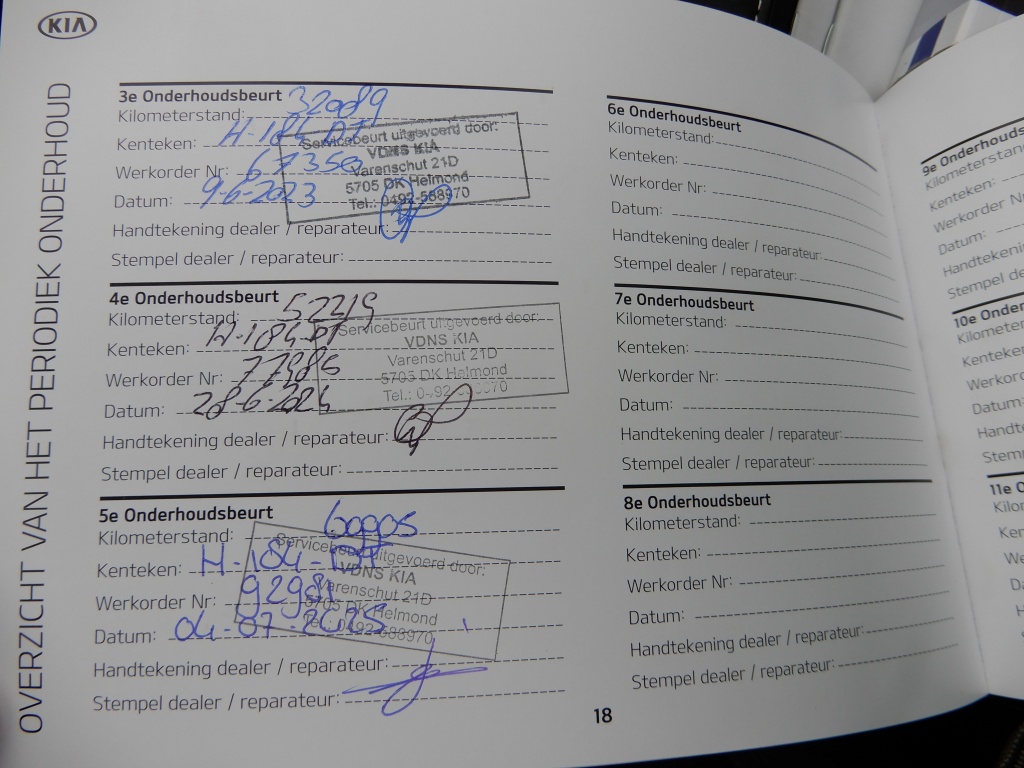 KIA
OVERZICHT VAN HET PERIODIEK ONDERHOUD
3e Onderhoudsbeurt
Kilometerstand: 32089
Kenteken: H-184
Werkorder Nr: 67350
Datum: 9-6-2023
Handtekening dealer / reparateur:
Stempel dealer / reparateur:
Servicebeurt uitgevoerd door:
VDNS KIA
Varenschut 21D
5705 DK Helmond
Tel.: 0492-588970
4e Onderhoudsbeurt
Kilometerstand: 52219
Kenteken: H-184
Werkorder Nr:
Datum: 28-6-2024
Handtekening dealer / reparateur:
Stempel dealer / reparateur:
Servicebeurt uitgevoerd door:
VDNS KIA
Varenschut 21D
5705 DK Helmond
Tel.: 0492-588970
5e Onderhoudsbeurt
Kilometerstand:
Kenteken: H-184
Werkorder Nr: 92981
Datum: 04-07-2025
Handtekening dealer / reparateur:
Stempel dealer / reparateur:
Servicebeurt uitgevoerd door:
VDNS KIA
Varenschut 21D
5705 DK Helmond
Tel.: 0492-588970
6e Onderhoudsbeurt
Kilometerstand:
Kenteken:
Werkorder Nr:
Datum:
Handtekening dealer / reparateur:
Stempel dealer / reparateur:
7e Onderhoudsbeurt
Kilometerstand:
Kenteken:
Werkorder Nr:
Datum:
Handtekening dealer / reparateur:
Stempel dealer / reparateur:
8e Onderhoudsbeurt
Kilometerstand:
Kenteken:
Werkorder Nr:
Datum:
Handtekening dealer / reparateur:
Stempel dealer / reparateur:
18
9e Onderhouds
Kilometerstan
Kenteken:
Werkorder N
Datum:
Handtekening
Stempel deale
10e Onderho
Kilometer
Kenteke
Werkor
Datum:
Handte
Stem
11e O
Kilo
Ken
We
Da